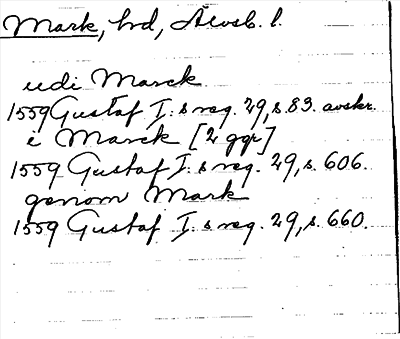 Mark, hrd, Älvsb. l.
udi Marck
1559 Gustaf I:s reg. 29, s. 83. avskr.
i Marck [2 ggr]
1559 Gustaf I:s reg. 29, s. 606.
genom Mark
1559 Gustaf I:s reg. 29, s. 660.